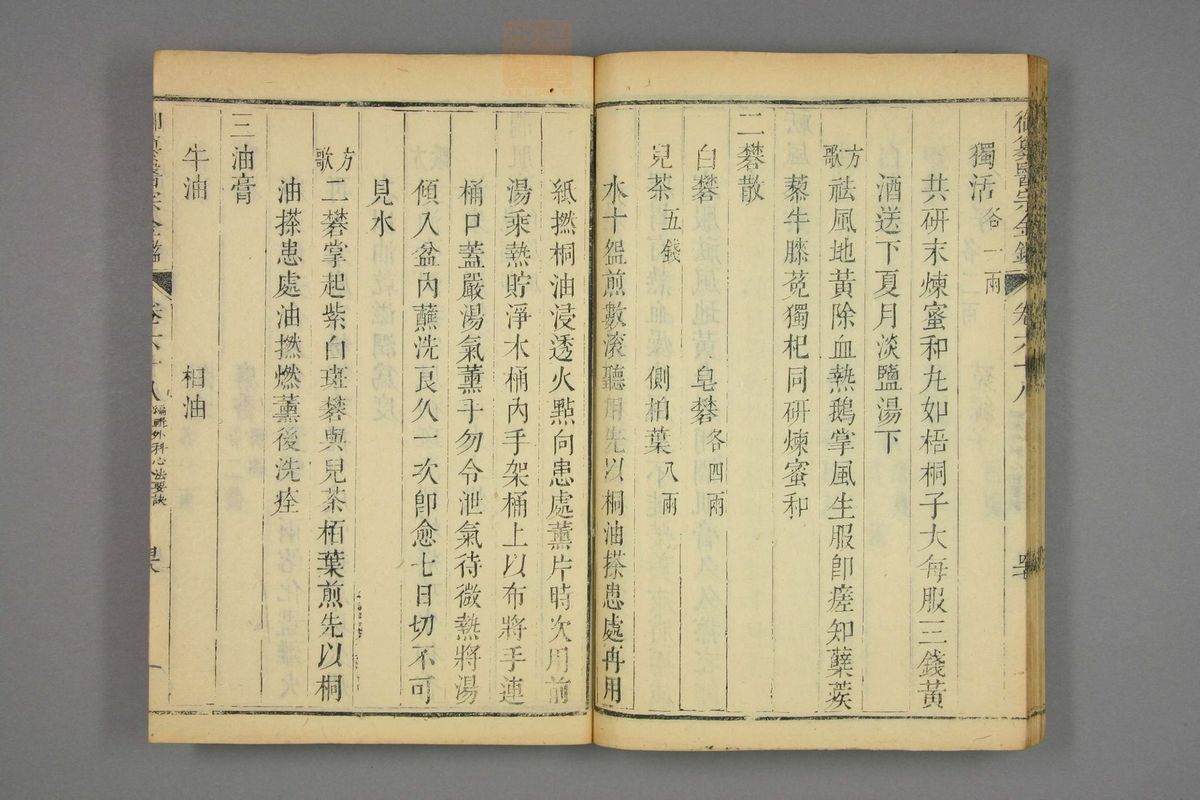 御纂醫宗金鑑 卷六十八
獨活各一兩
共研末煉蜜和丸如梧桐子大每服三錢黃
酒送下夏月淡鹽湯下
方歌 祛風地黃除血熱鵝掌風生服卽瘥知蘗蒺
藜牛膝菟獨杞同研煉蜜和
二礬散
白礬 皂礬各四兩
兒茶五錢 側柏葉八兩
水十盌煎數滾聽用先以桐油搽患處再用
紙撚桐油浸透火點向患處薰片時次用前
湯乘熱貯淨木桶內手架桶上以布將手連
桶口蓋嚴湯氣薰手勿令泄氣待微熱將湯
傾入盆內蘸洗良久一次卽愈七日切不可
見水
方歌 二礬掌起紫白斑礬與兒茶栢葉煎先以桐
油搽患處油撚燃薰後洗痊
三油膏
牛油 桕油
御纂醫宗金鑑 卷六十八 編輯外科心法要訣